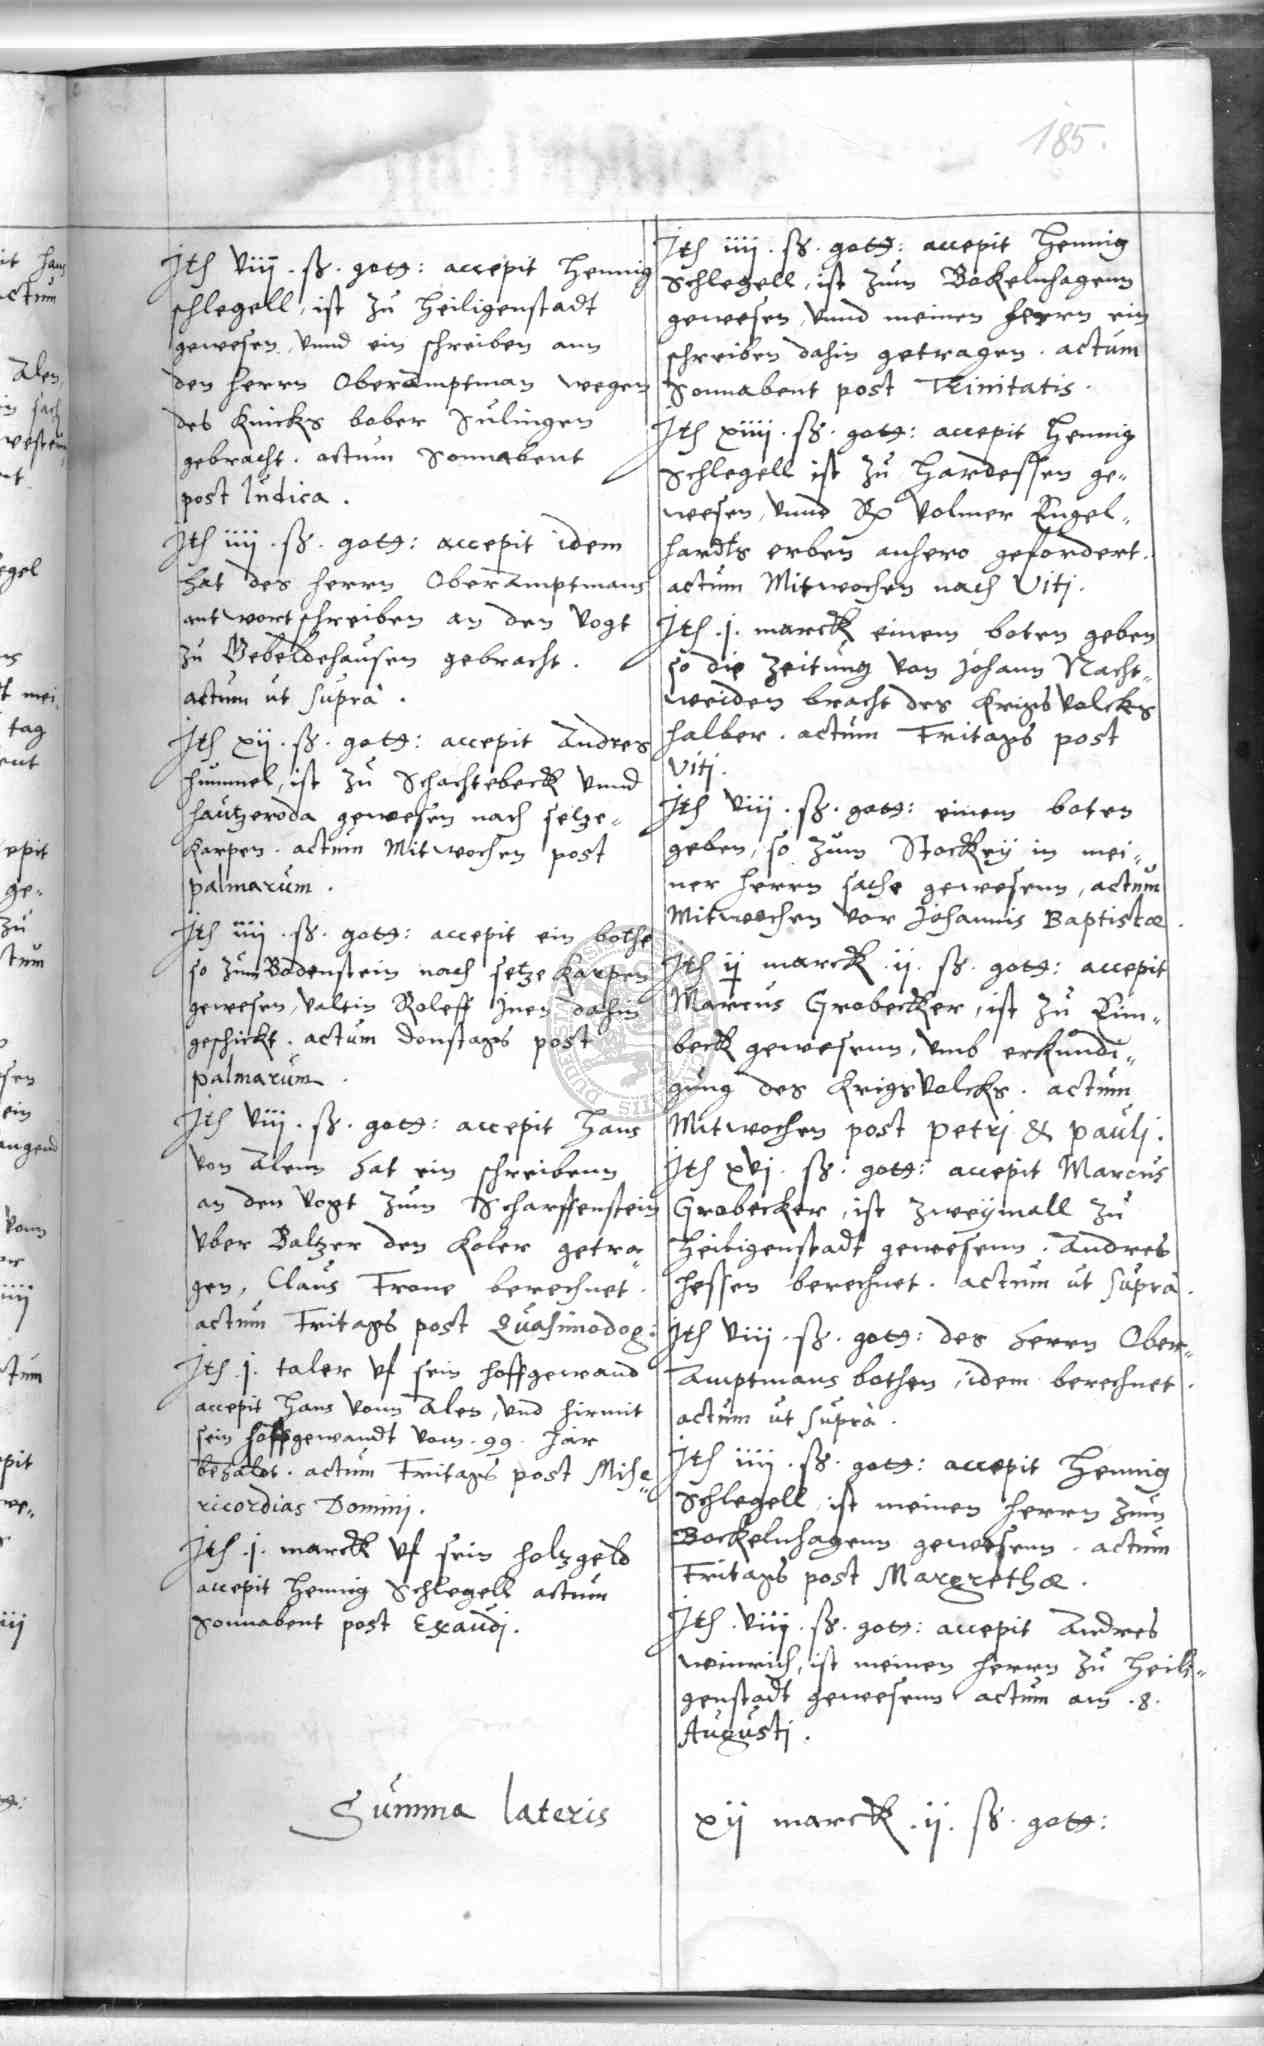 185.
Jtē viij. ß. gottġ: accepit Hennig
schlegell, ist zu Heiligenstadt
gewesen, vnnd ein schreiben ann
den herrn Oberamptman wegen
des Knicks bober Sulingen
gebracht. actum Sonnabent
post Iudica.
Jtē iiij. ß. gottġ: accepit idem
hat des herrn Oberamptmans
antwort schreiben an den Vogt
zu Gebeldehausen gebracht.
actum ut suprà.
Jtē xij. ß. gottġ: accepit Andres
hummel, ist zu Schachtebeck vnnd
hautzeroda gewesen nach setze-
Karpen. actum Mitwochen post
palmarum.
Jtē iiij. ß. gottġ: accepit ein bothe
so zum Bodenstein nach setze Karpen
gewesen, Valtin Roleff Jnen dahin
geschickt. actum Donstags post
palmarum.
Jtē viij. ß. gottġ: accepit Hans
von Alenn hat ein schreibenn
an den Vogt zum Scharffenstein
vber Baltzer den Koler getra-
gen, Claus Trone berechnet.
actum Fritags post Quasimodog:
Jtē .j. taler vf sein hoffgewand
accepit Hans vonn Alen, vnd hirmit
sein hoffgewandt vom .99. Jar
bezalet. actum Fritags post Mise-
ricordias Dominj.
Jtē .j. marck vf sein holtzgeld
accepit Hennig Schlegell actum
Sonnabent post Exaudj.
Jtē iiij. ß. gottġ: accepit Hennig
Schlegell, ist zum Bokelnhagenn
gewesen, vnnd meinen herrn ein
schreiben dahin getragen. actum
Sonnabent post Trinitatis.
Jtē xiiij. ß. gottġ: accepit Hennig
Schlegell ist zu Hardessen ge-
wesen, vnnd Volmer Engel-
hardts erben anhero gefordert.
actum Mitwochen nach Vitj.
Jtē .j. marck einem boten geben
so die Zeitung von Johann Nacht-
weiden bracht des Krigs Volcks
halber. actum Fritags post
Vitj.
Jtē viij. ß. gottġ: einem boten
geben, so zum Stockey in mei-
ner herrn sache gewesenn, actum
Mitwochen vor Johannis Baptistæ.
Jtē ij marck .ij. ß. gottġ: accepit
Marcus Grobecker, ist zu Eim-
beck gewesenn, vmb erkundi-
gung des Krigs Volcks. actum
Mitwochen post petrj & paulj.
Jtē xvj. ß. gottġ: accepit Marcus
Grobecker, ist zweymall zu
Heiligenstadt gewesenn. Andres
Hessen berechnet. actum ut suprà.
Jtē viij. ß. gottġ: des herrn Ober-
Amptmans bothen, idem berechnet.
actum ut suprà.
Jtē iiij. ß. gottġ: accepit Hennig
Schlegell, ist meinen herrn zum
Bockelnhagenn gewesenn. actum
Fritags post Margrethæ.
Jtē .viij. ß. gottġ: accepit Andres
weinrich, ist meinen herrn zu Heili-
genstadt gewesenn actum am .8.
Augustj.
Summa lateris xij marck .ij. ß. gottġ: